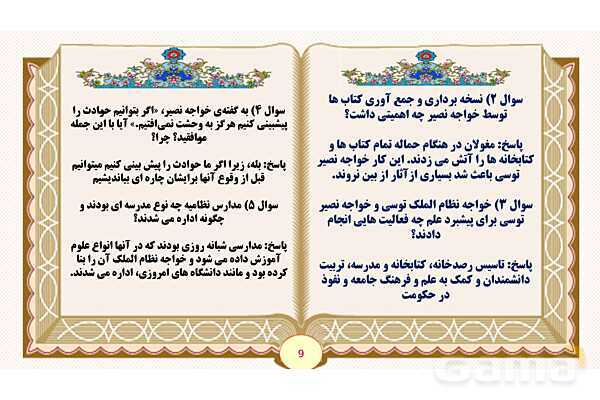 سوال ۲) نسخه برداری و جمع آوری کتاب ها
توسط خواجه نصیر چه اهمیتی داشت؟
پاسخ: مغولان در هنگام حماله تمام کتاب ها و
کتابخانه ها را آتش می زدند. این کار خواجه نصیر
توسی باعث شد بسیاری ازآثار از بین نروند.
سوال ۳) خواجه نظام الملک توسی و خواجه نصیر
توسی برای پیشبرد علم چه فعالیت هایی انجام
دادند؟
پاسخ: تاسیس رصدخانه، کتابخانه و مدرسه، تربیت
دانشمندان و کمک به علم و فرهنگ جامعه و نفوذ
در حکومت
سوال ۴) به گفته‌ی خواجه نصیر، «اگر بتوانیم حوادث را
پیشبینی کنیم هرگز به وحشت نمی‌افتیم.» آیا با این جمله
موافقید؟ چرا؟
پاسخ: بله، زیرا اگر ما حوادث را پیش بینی کنیم میتوانیم
قبل از وقوع آنها برایشان چاره ای بیاندیشیم
سوال ۵) مدارس نظامیه چه نوع مدرسه ای بودند و
چگونه اداره می شدند؟
پاسخ: مدارسی شبانه روزی بودند که در آنها انواع علوم
آموزش داده می شود و خواجه نظام الملک آن را بنا
کرده بود و مانند دانشگاه های امروزی، اداره می شدند.
9
Gama